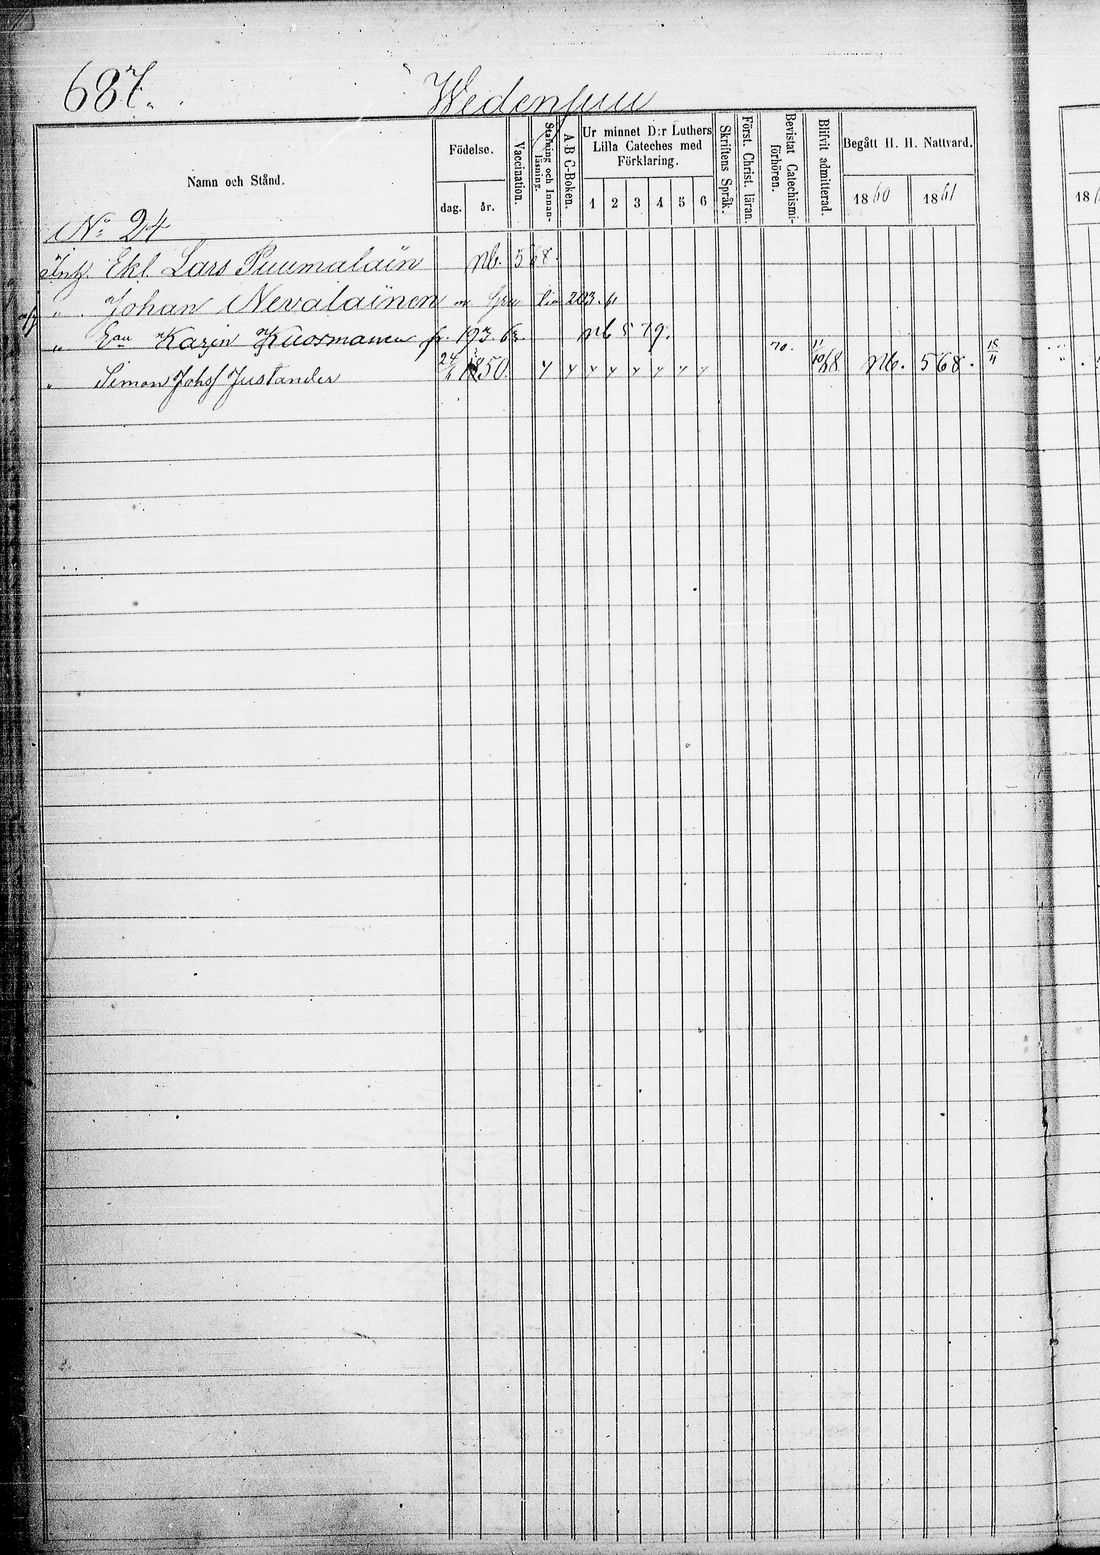 687.
Wedensuu
Namn och Stånd.
Födelse.
dag.
år.
Vaccination.
Stafning och Innan-läsning.
A-B C-Boken.
Ur minnet D:r Luthers Lilla Cateches med Förklaring.
1 2 3 4 5 6
Skriftens Språk.
Först. Christ. läran.
Bevistat Catechismi-förhören.
Blifvit admitterad.
Begått H. H. Nattvard.
1860 1861
No 24
Inh. Ekl Lars Puumalain nb. 568.
„ Johan Nevalainen 203.
„ Karin Kuosmanen fr. 193. 63. nb 579.
„ Simon Johs/ Justander 24 1850. 70. 68. nb. 568.